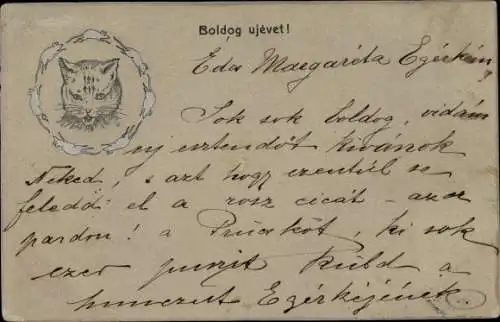 Boldog ujévet!
Eda Margaréta Egérkém
Sok sok boldog, vidám
uj esztendőt kivánok
Neked, s azt hogy ezentúl se
feledd el a rosz cicát - azaz
pardon! a Prücsköt, ki sok
ezer puszit küld a
Egérkéjének.